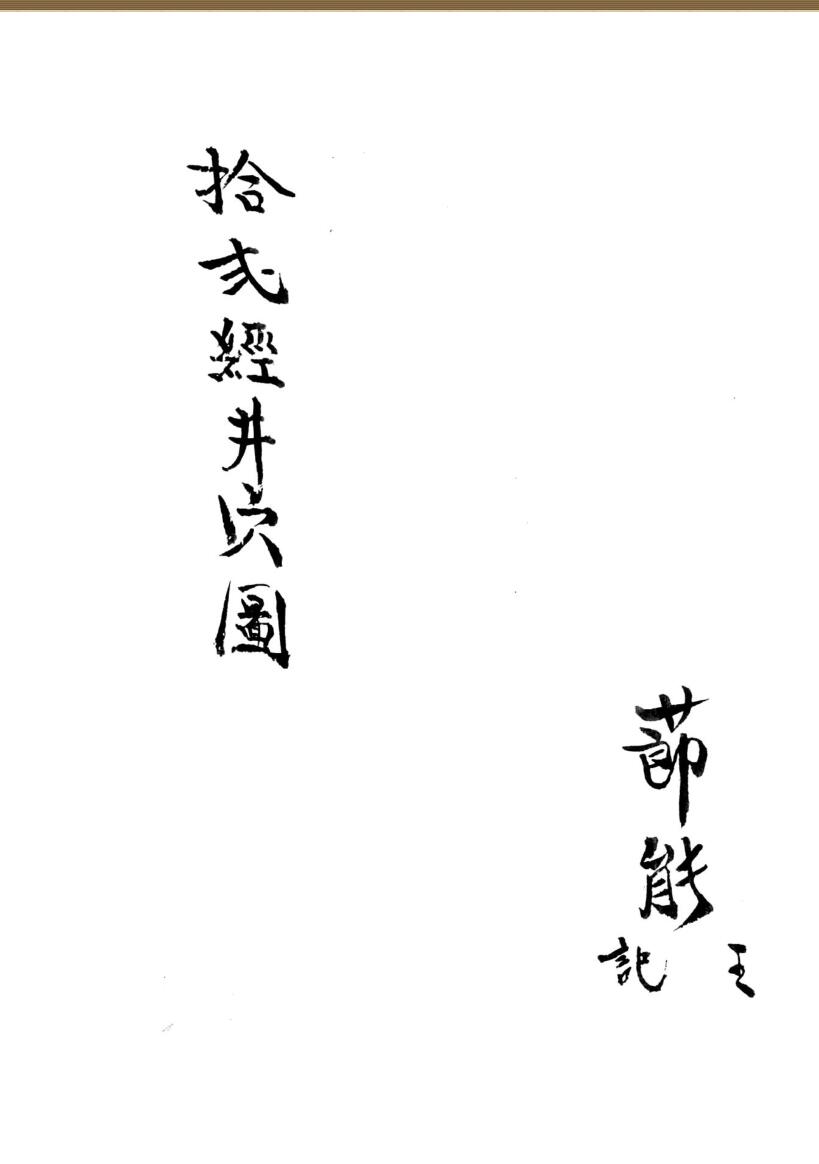 莭能
王記
拾弍經井穴圖